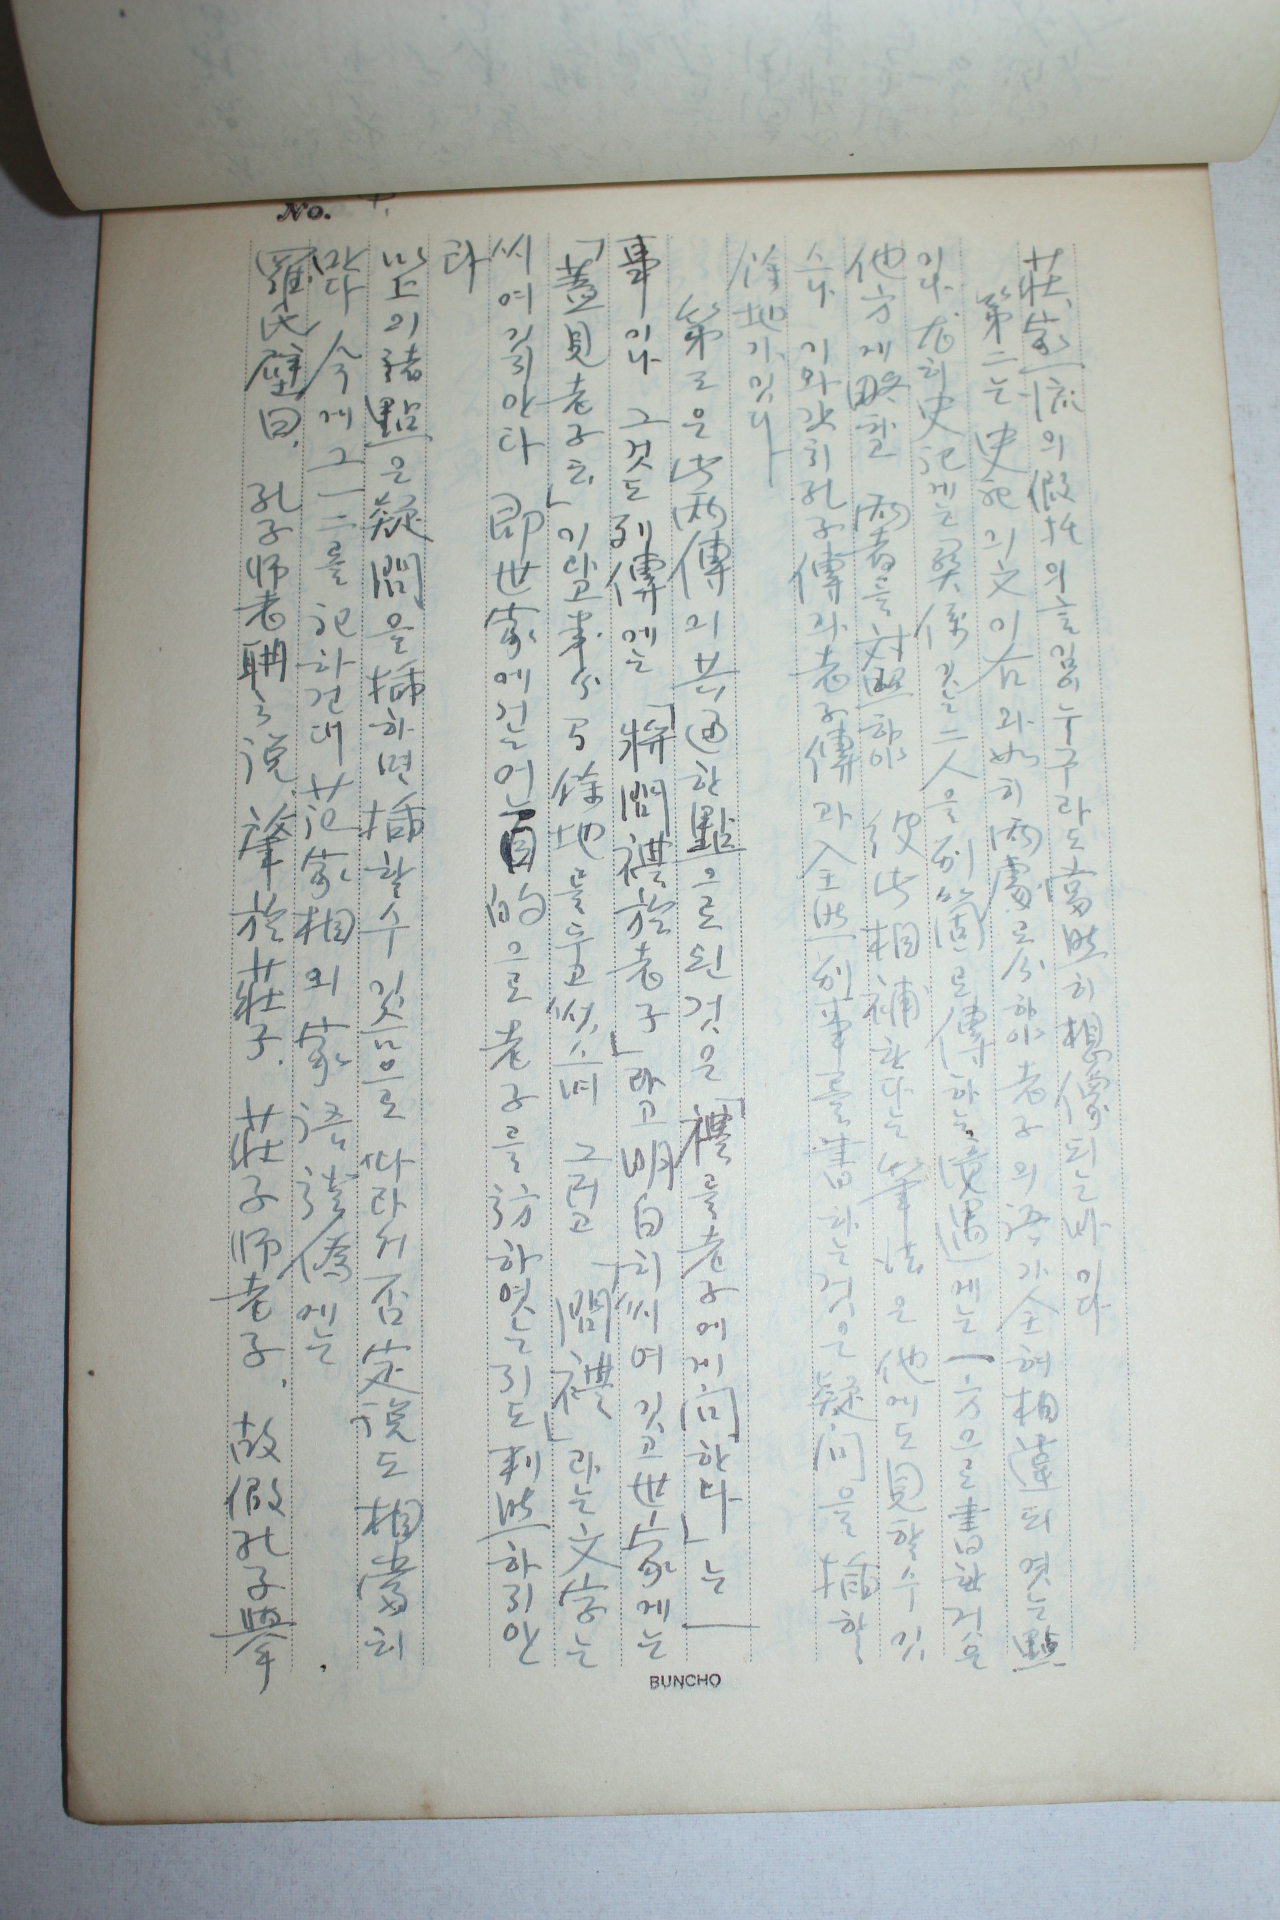 No.
莊家一流의 假托의 흠임이 누구라도 當然히 想像되는 바이다
第二는 史記의 文이 右와 如히 兩處로 分하야 老子의 語가 全혀 相違되엿는 點
이다 尤히 史記에는 關係잇는 二人을 別箇로 傳하는 境遇에는 一方으로 書한거슨
他方에 略할 兩者를 対照하야 彼此相補한다는 筆法은 他에도 見할수 잇
스나 이와갓히 孔子傳과 老子傳과 全然 別事를 書하는 것은 疑问을 揷할
餘地가 잇다
第三은 此兩傳의 共通한 點으로 된 것은 「禮를 老子에게 问하다」는 一
事이나 그것도 列傳에는 「將問禮於老子」라고 明白히 씨여 잇고 世家에는
「蓋見老子云」이라고 多少 餘地를 두고 썻스며 그리고 「問禮」라는 文字는
씨여 잇지 안타 即 世家에는 어늬 目的으로 老子를 訪하엿는지도 判然하지 안
타
以上의 諸點은 疑問을 揷하면 揷할수 잇슴으로 따라서 否定說도 相當히
만타 今에 그 一二를 記하건대 范家相의 家語證僞에는
羅氏璧曰, 孔子師老聃之說, 肇於莊子, 莊子師老子, 故假孔子擧
BUNCHO